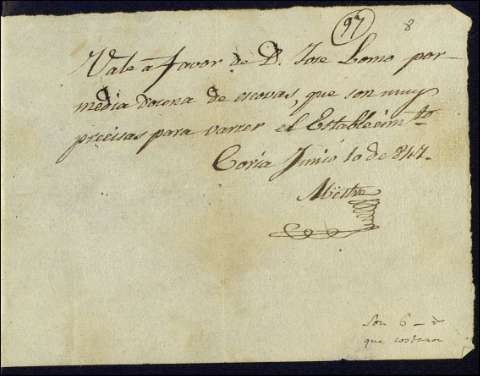 97
8
Vale a favor de D. Jose Lomo por
media docena de escovas, que son muy
precisas para varrer el Establecim.to
Coria Junio 10 de 847.
Son 6
que costaron